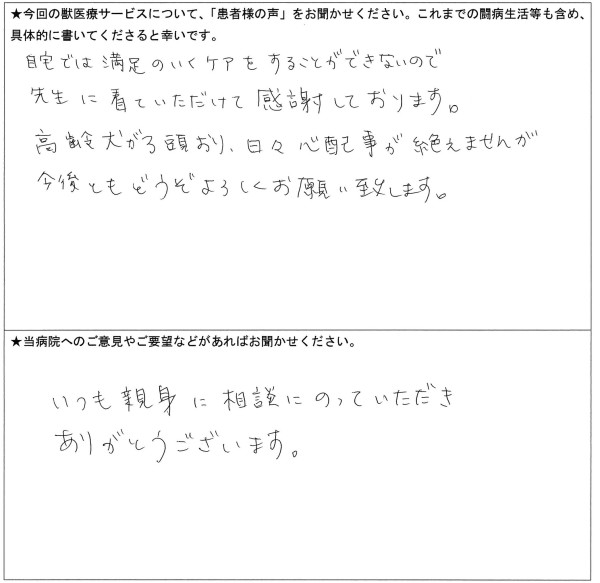 ★今回の獣医療サービスについて、「患者様の声」をお聞かせください。これまでの闘病生活等も含め、
具体的に書いてくださると幸いです。
自宅では満足のいくケアをすることができないので
先生に看ていただけて感謝しております。
高齢犬が3頭おり、日々心配事が絶えませんが
今後ともどうぞよろしくお願い致します。
★当病院へのご意見やご要望などがあればお聞かせください。
いつも親身に相談にのっていただき
ありがとうございます。